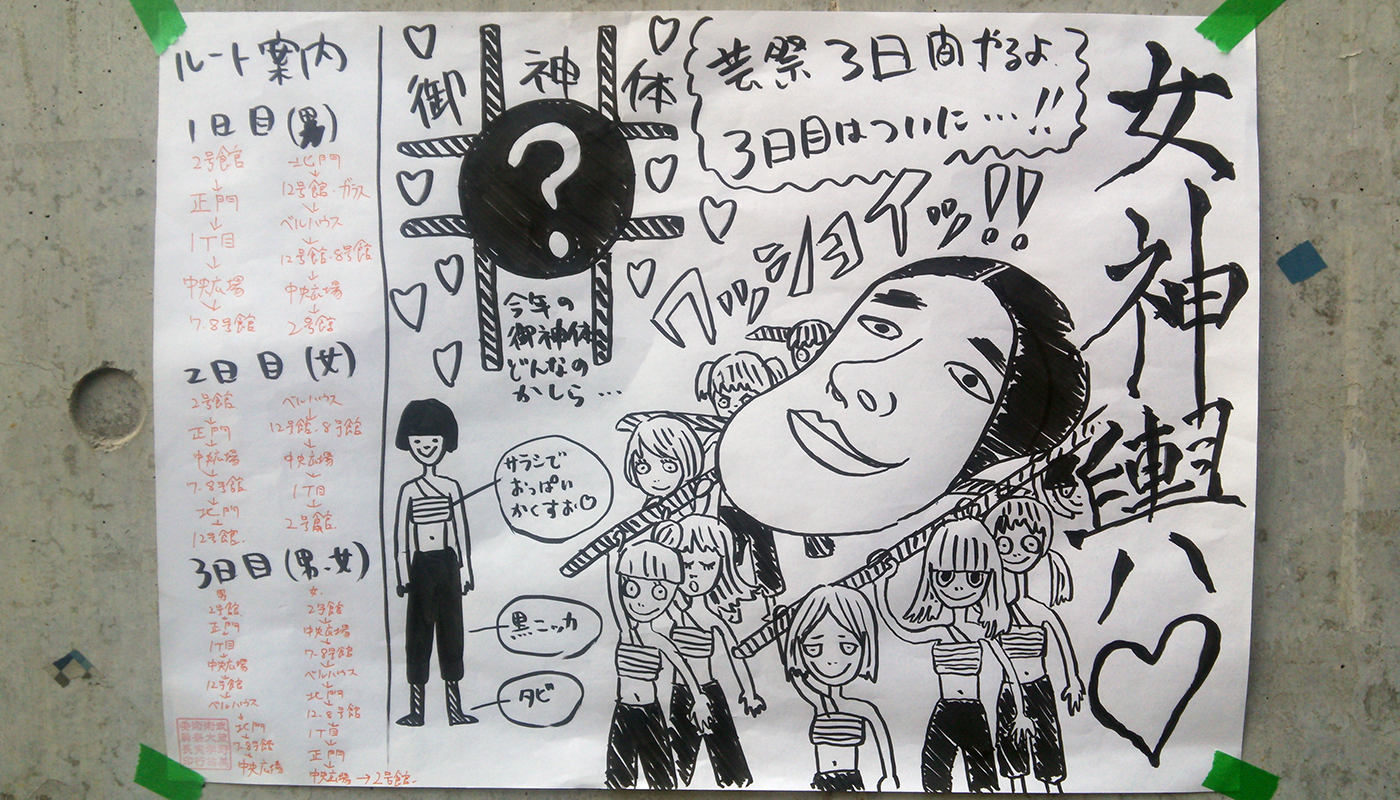 ルート案内
1日目(男)
2号館
↓
正門
↓
1丁目
↓
中央広場
↓
7.8号館
北門
↓
12号館・ガラス
↓
ベルハウス
↓
12号館・8号館
↓
中央広場
↓
2号館
2日目(女)
2号館
↓
正門
↓
中央広場
↓
7.8号館
↓
北門
↓
12号館.
ベルハウス
↓
12号館・8号館
↓
中央広場
↓
1丁目
↓
2号館.
3日目(男、女)
男
2号館
↓
正門
↓
1丁目
↓
中央広場
↓
12号館
↓
ベルハウス
↓
北門
↓
7.8号館
↓
中央広場
女.
2号館
↓
中央広場
↓
7.8号館
↓
ベルハウス
↓
北門
↓
12.8号館
↓
1丁目
↓
正門
↓
中央広場→2号館.
御神体
?
今年の
御神体
どんなの
かしら…
サラシで
おっぱい
かくすお♡
黒ニッカ
タビ
芸祭3日間やるよ
3日目はついに…!!
ワッショイッ!!
女神輿ハ♡